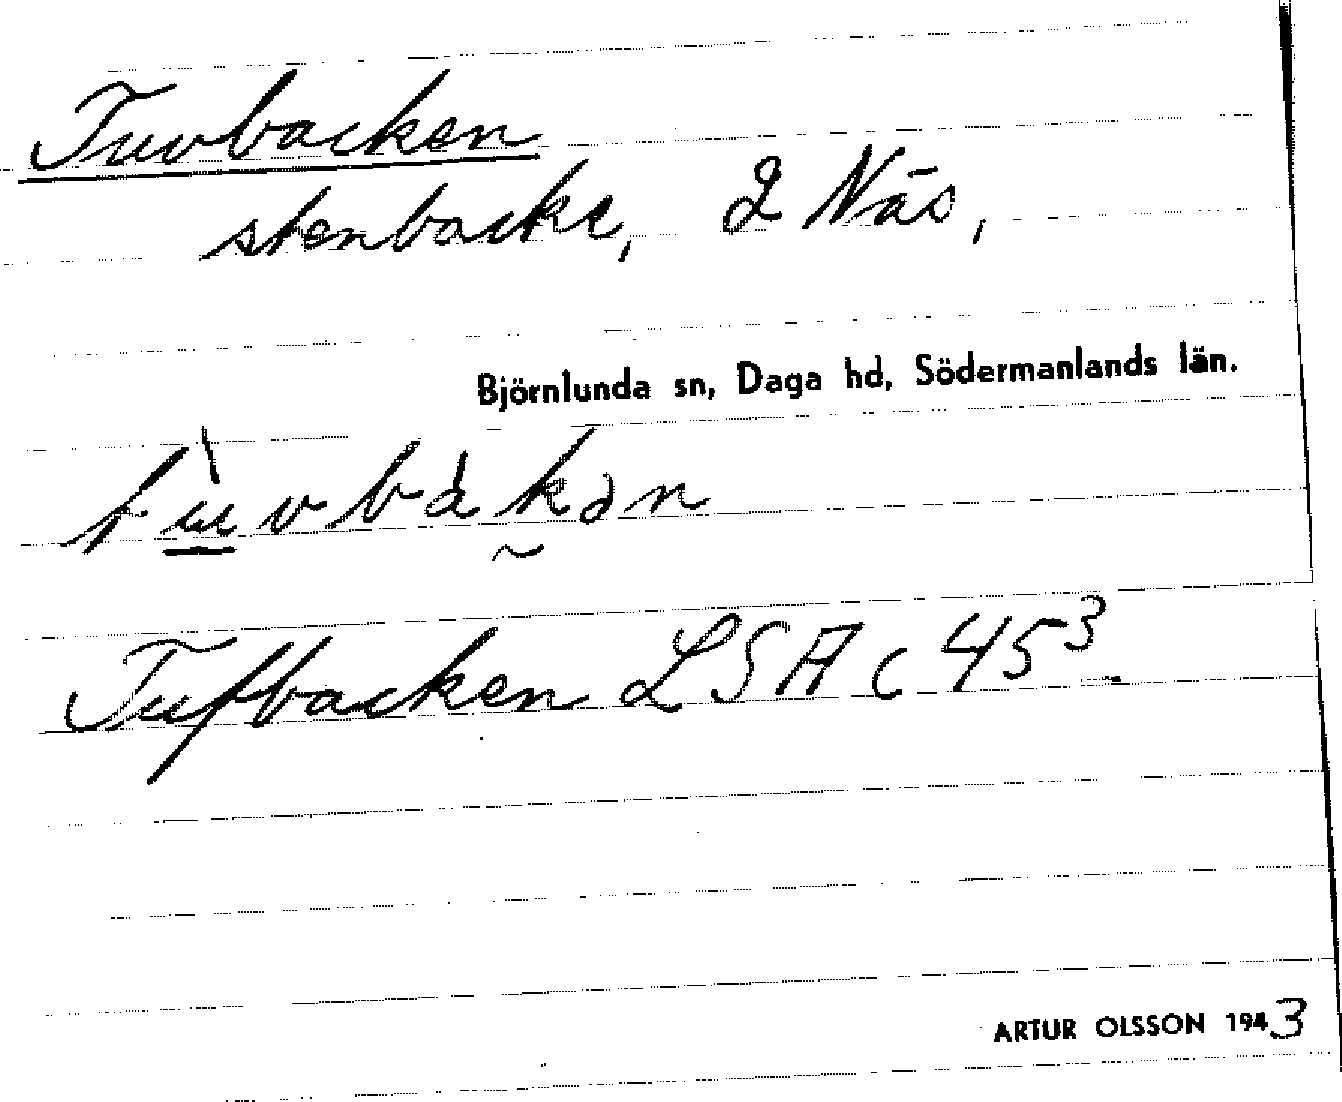 Tuvbacken
stenbacke, 2 Näs,
Björnlunda sn, Daga hd, Södermanlands län.
tùvbàkən
Tufbacken LSA C 45³
ARTUR OLSSON 1943